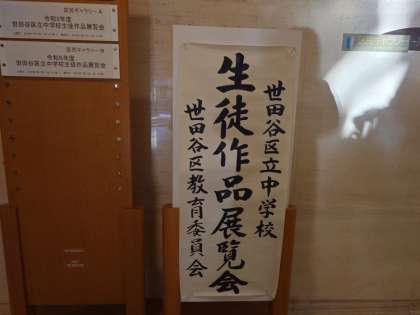 区民ギャラリーA
世田谷区立中学校生徒作品展覧会
区民ギャラリーB
世田谷区立中学校生徒作品展覧会
世田谷区立中学校
生徒作品展覧会
世田谷区教育委員会